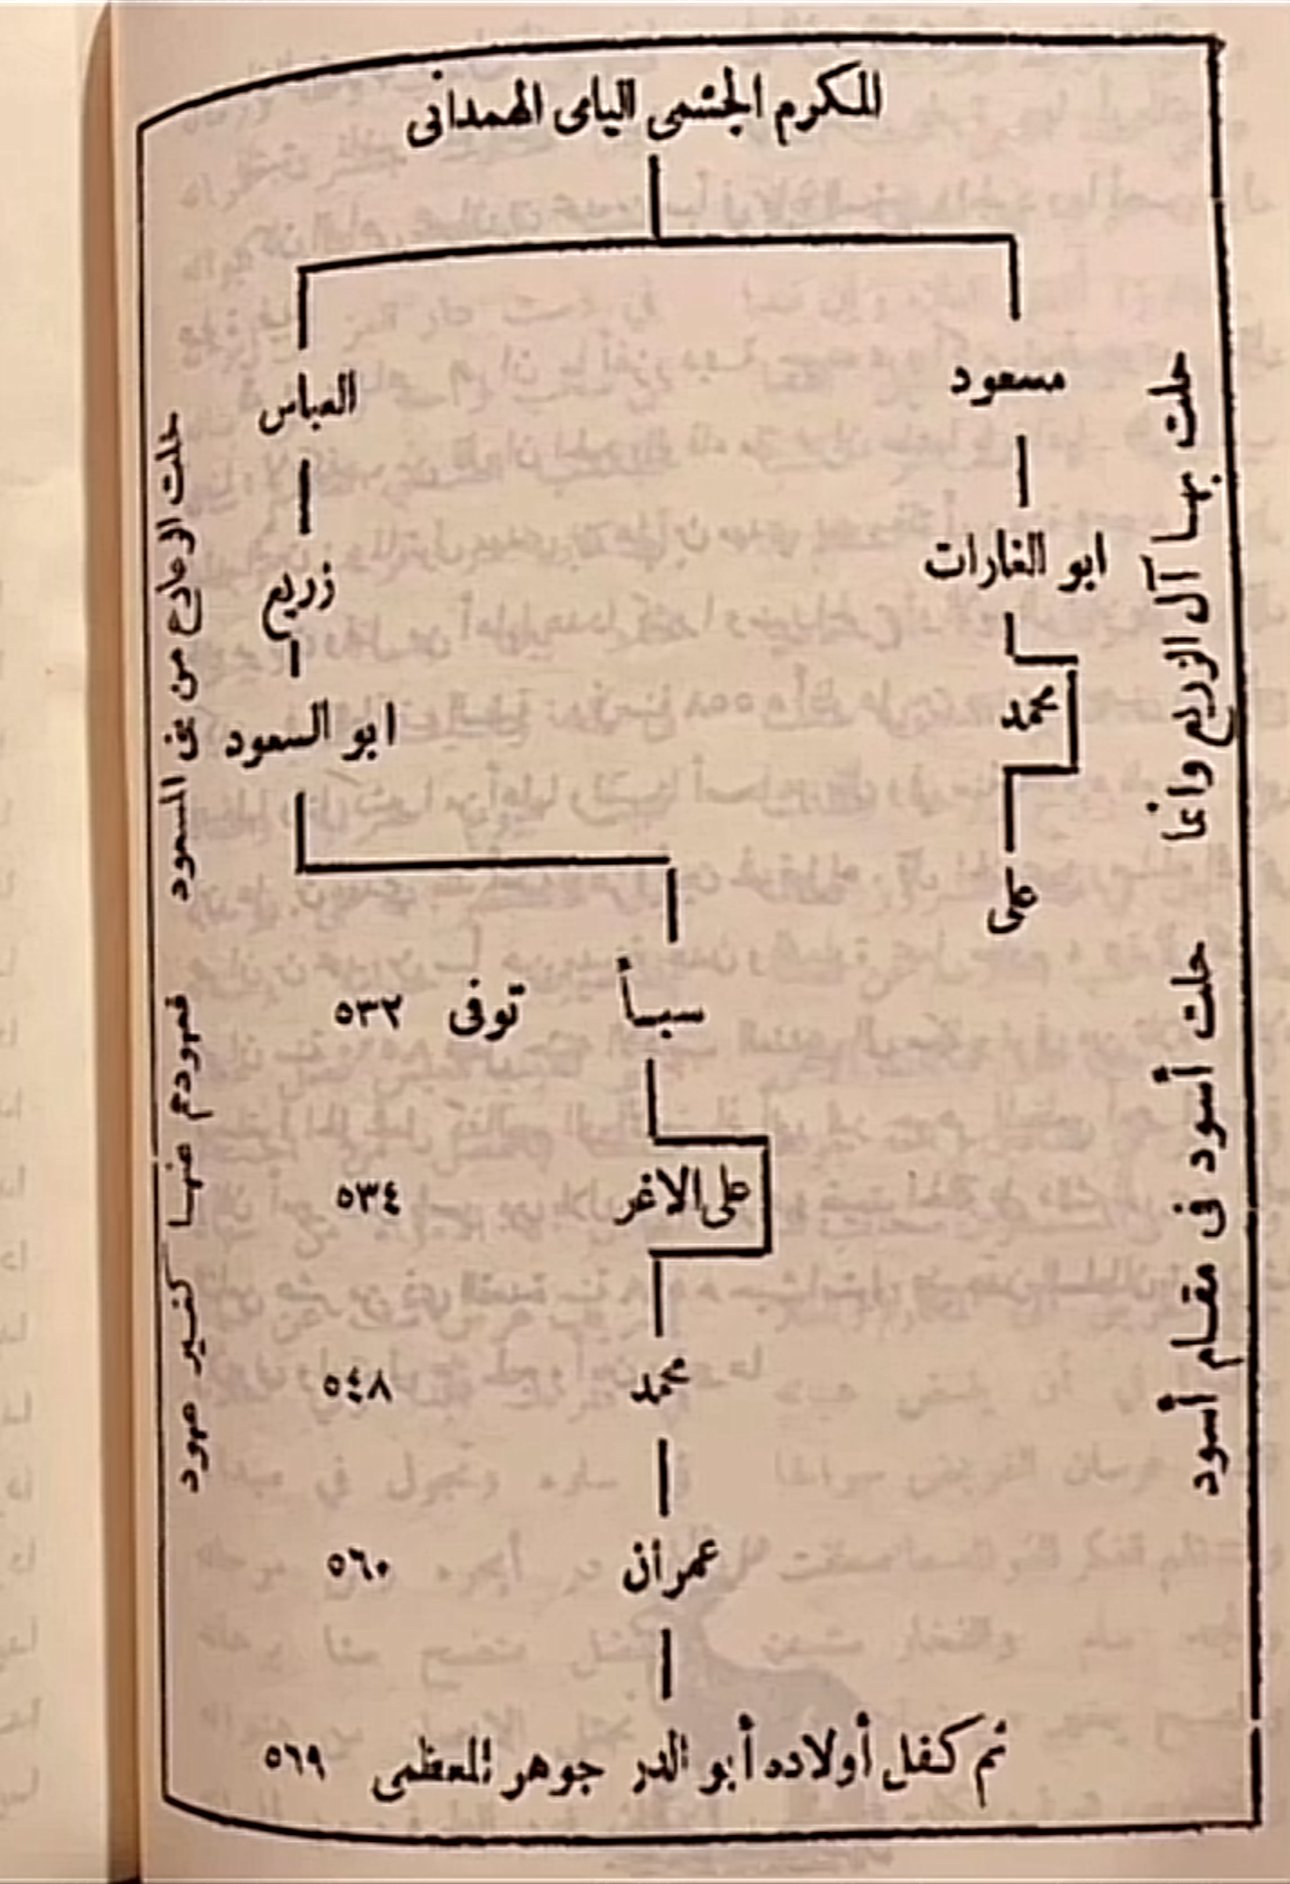 المكرم الجشمى اليامى الهمدانى
مسعود
العباس
ابو الغارات
زريع
محمد
ابو السعود
على
سبأ توفى ٥٣٢
على الاغر ٥٣٤
محمد ٥٤٨
عمران ٥٦٠
ثم كفل أولاده أبو الدر جوهر المعظمى ٥٦٩
حلت بها آل الزريع وانما
حلت أسود فى مقام أسود
خلت الزعازع من بنى المسعود
فعهودهم عنها كغير عهود